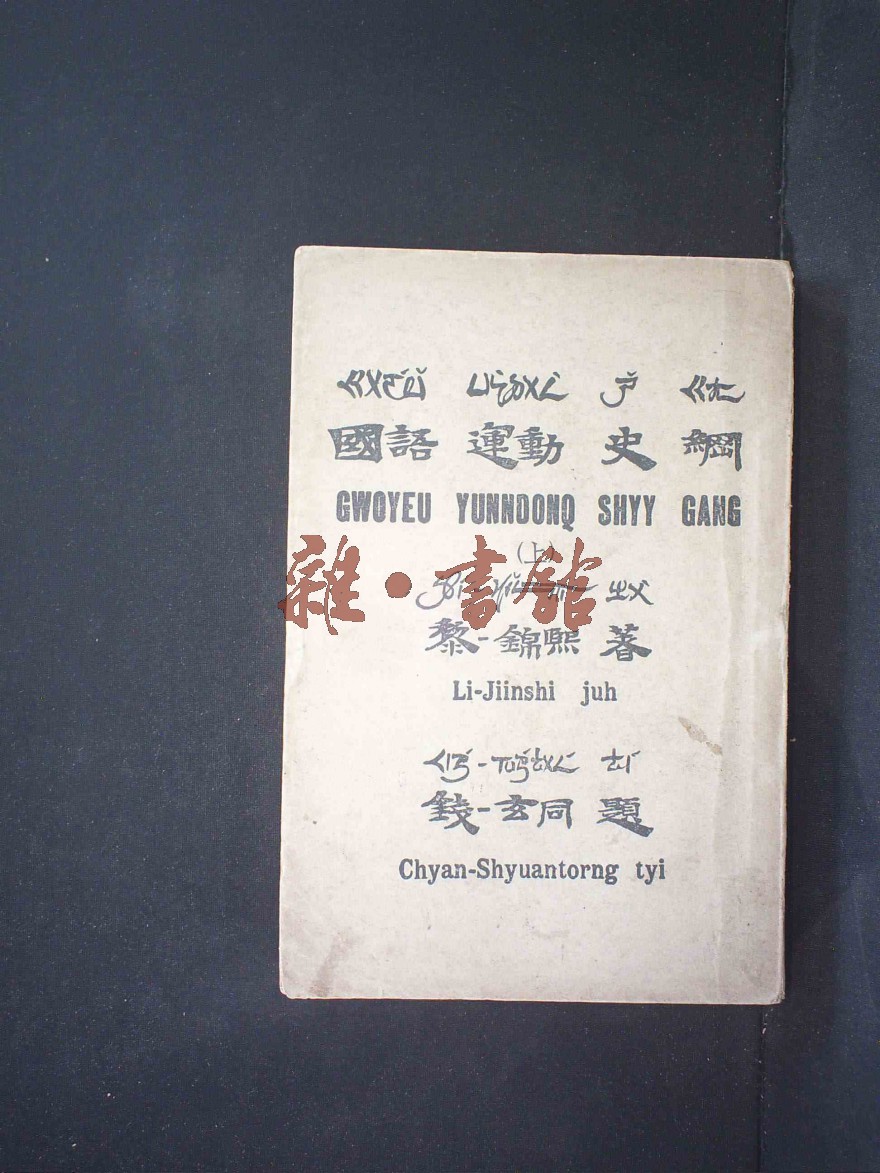 ㄍㄨㄛˊㄩˇ ㄩㄣˋㄉㄨㄥˋ ㄕˇ ㄍㄤ
國語 運動 史 綱
GWOYEU YUNNDONQ SHYY GANG
(上)
雜·書館
ㄓㄨ
黎-錦熙 著
Li-Jiinshi juh
ㄑㄧㄢˊ-ㄒㄩㄢˊㄊㄨㄥˊ ㄊㄧˊ
錢-玄同 題
Chyan-Shyuantorng tyi